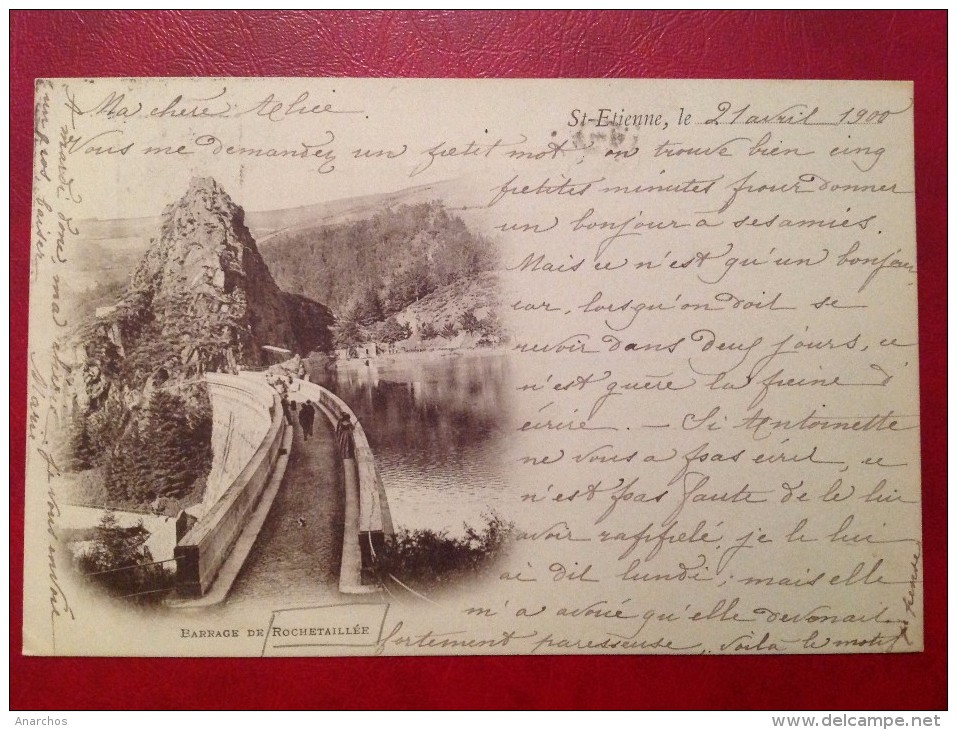 St-Etienne, le 21 avril 1900
Ma chère Alice
Vous me demandez un petit mot, on trouve bien cinq
petites minutes pour donner
un bonjour à ses amies.
Mais ce n'est qu'un bonjour
car, lorsqu'on doit se
revoir dans deux jours, ce
n'est guère la peine d'
écrire. — Si Antoinette
ne vous a pas écrit, ce
n'est pas faute de le lui
avoir rappelé, je le lui
ai dit lundi; mais elle
m'a avoué qu'elle devenait
fortement paresseuse, voilà le motif
BARRAGE DE ROCHETAILLÉE
A mardi donc, ma chérie je vous envoie
un gros baiser
Marie
Anarchos
www.delcampe.net